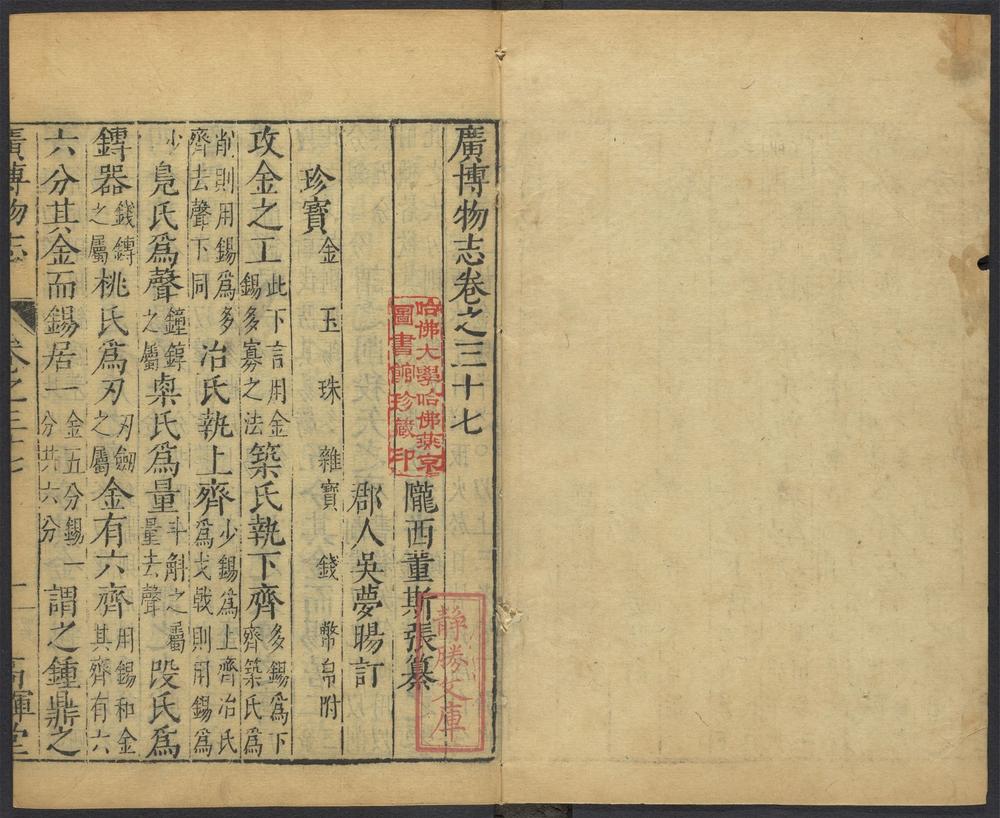 廣博物志卷之三十七
隴西董斯張纂
郡人吳夢暘訂
珍寶 金 玉 珠 雜寶 錢 幣帛附
攻金之工此下言用金錫多寡之法築氏執下齊多錫爲下齊築氏爲
削則用錫爲多齊去聲下同冶氏執上齊少錫爲上齊冶氏爲戈戟則用錫爲
少鳧氏爲聲鐘錞之屬㮚氏爲量斗斛之屬量去聲段氏爲
鎛器錢鎛之屬桃氏爲刃刃劒之屬金有六齊用錫和金其齊有六
六分其金而錫居一金五分錫一分共六分謂之鍾鼎之
廣博物志 卷之三十七 一 高暉堂
哈佛大學哈佛燕京
圖書館珍藏印
静勝文庫